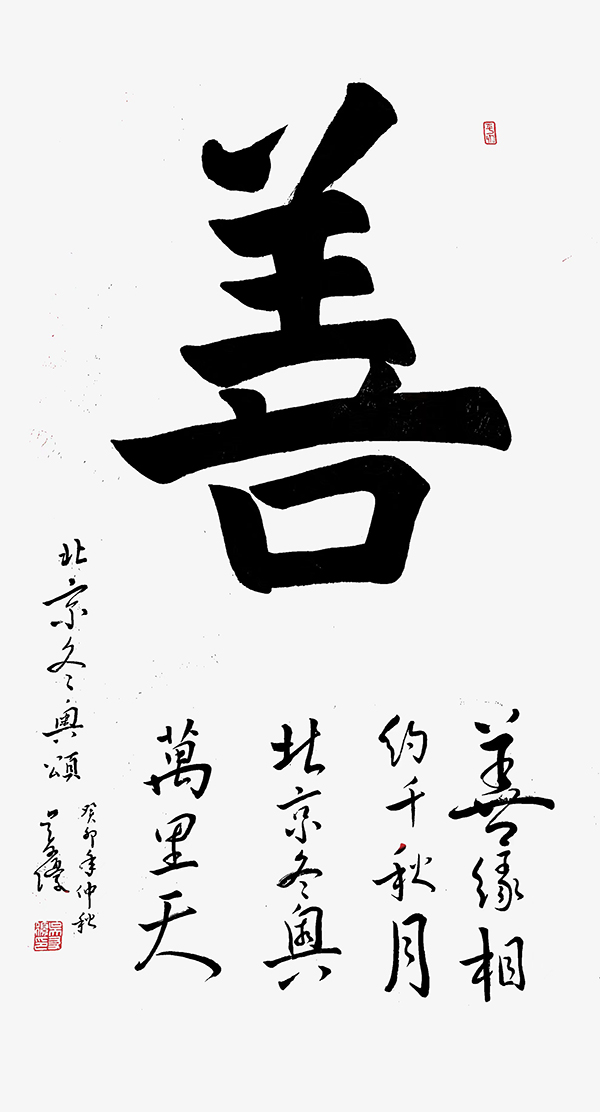 善
善缘相
约千秋月
北京冬奥
萬里天
北京冬奥頌
癸卯年仲秋